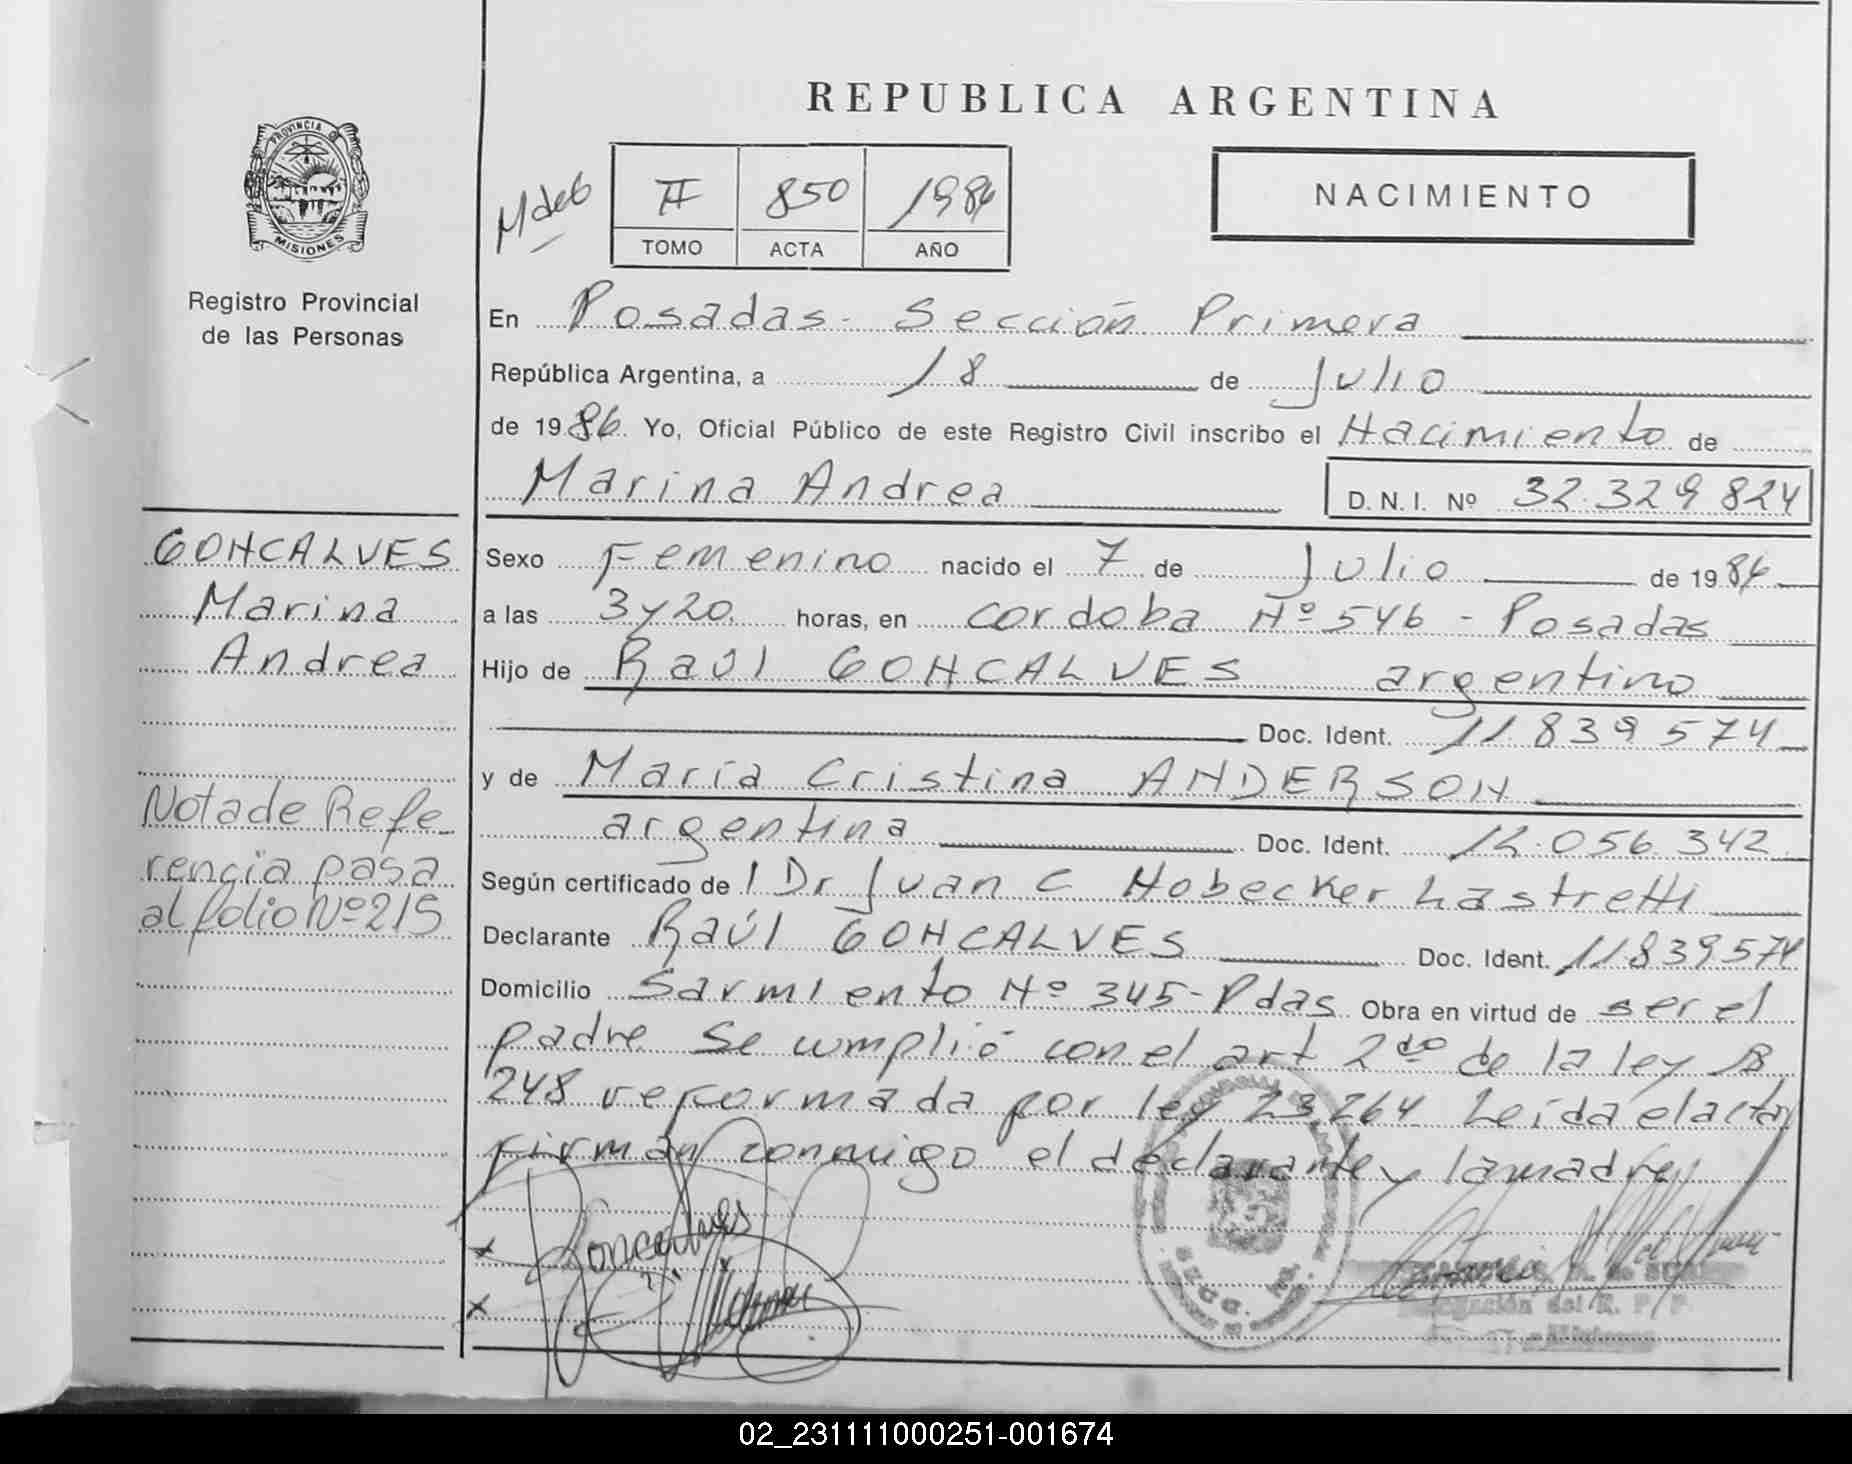 REPUBLICA ARGENTINA
PROVINCIA DE
MISIONES
Registro Provincial
de las Personas
II 850 1986
TOMO ACTA AÑO
NACIMIENTO
En Posadas - Sección Primera
República Argentina, a 18 de Julio
de 1986 Yo, Oficial Público de este Registro Civil inscribo el Nacimiento de
Marina Andrea D.N.I. Nº 32.329.824
GONCALVES
Marina
Andrea
Nota de Refe-
rencia pasa
al folio Nº 215
Sexo Femenino nacido el 7 de Julio de 1986
a las 3 y 20 horas, en Cordoba Nº 546 - Posadas
Hijo de Raúl GONCALVES argentino
Doc. Ident. 11.839.574
y de María Cristina ANDERSON
argentina Doc. Ident. 12.056.342
Según certificado de l Dr Juan C Hobecker Lastretti
Declarante Raúl GONCALVES Doc. Ident. 11839574
Domicilio Sarmiento Nº 345 - Pdas Obra en virtud de ser el
padre Se cumplió con el art 2do de la ley 18
248 reformada por ley 23264 Leída el acta
firman conmigo el declarante y la madre
Goncalves
02_231111000251-001674